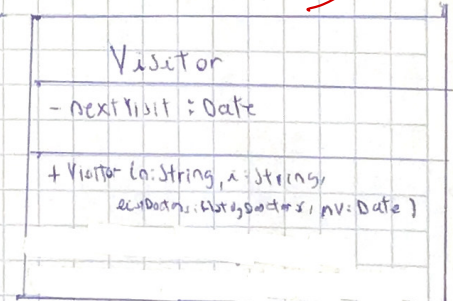 Visitor
- nextVisit : Date
+ Visitor (n:String, i:String,
listDoctors: , nv:Date)